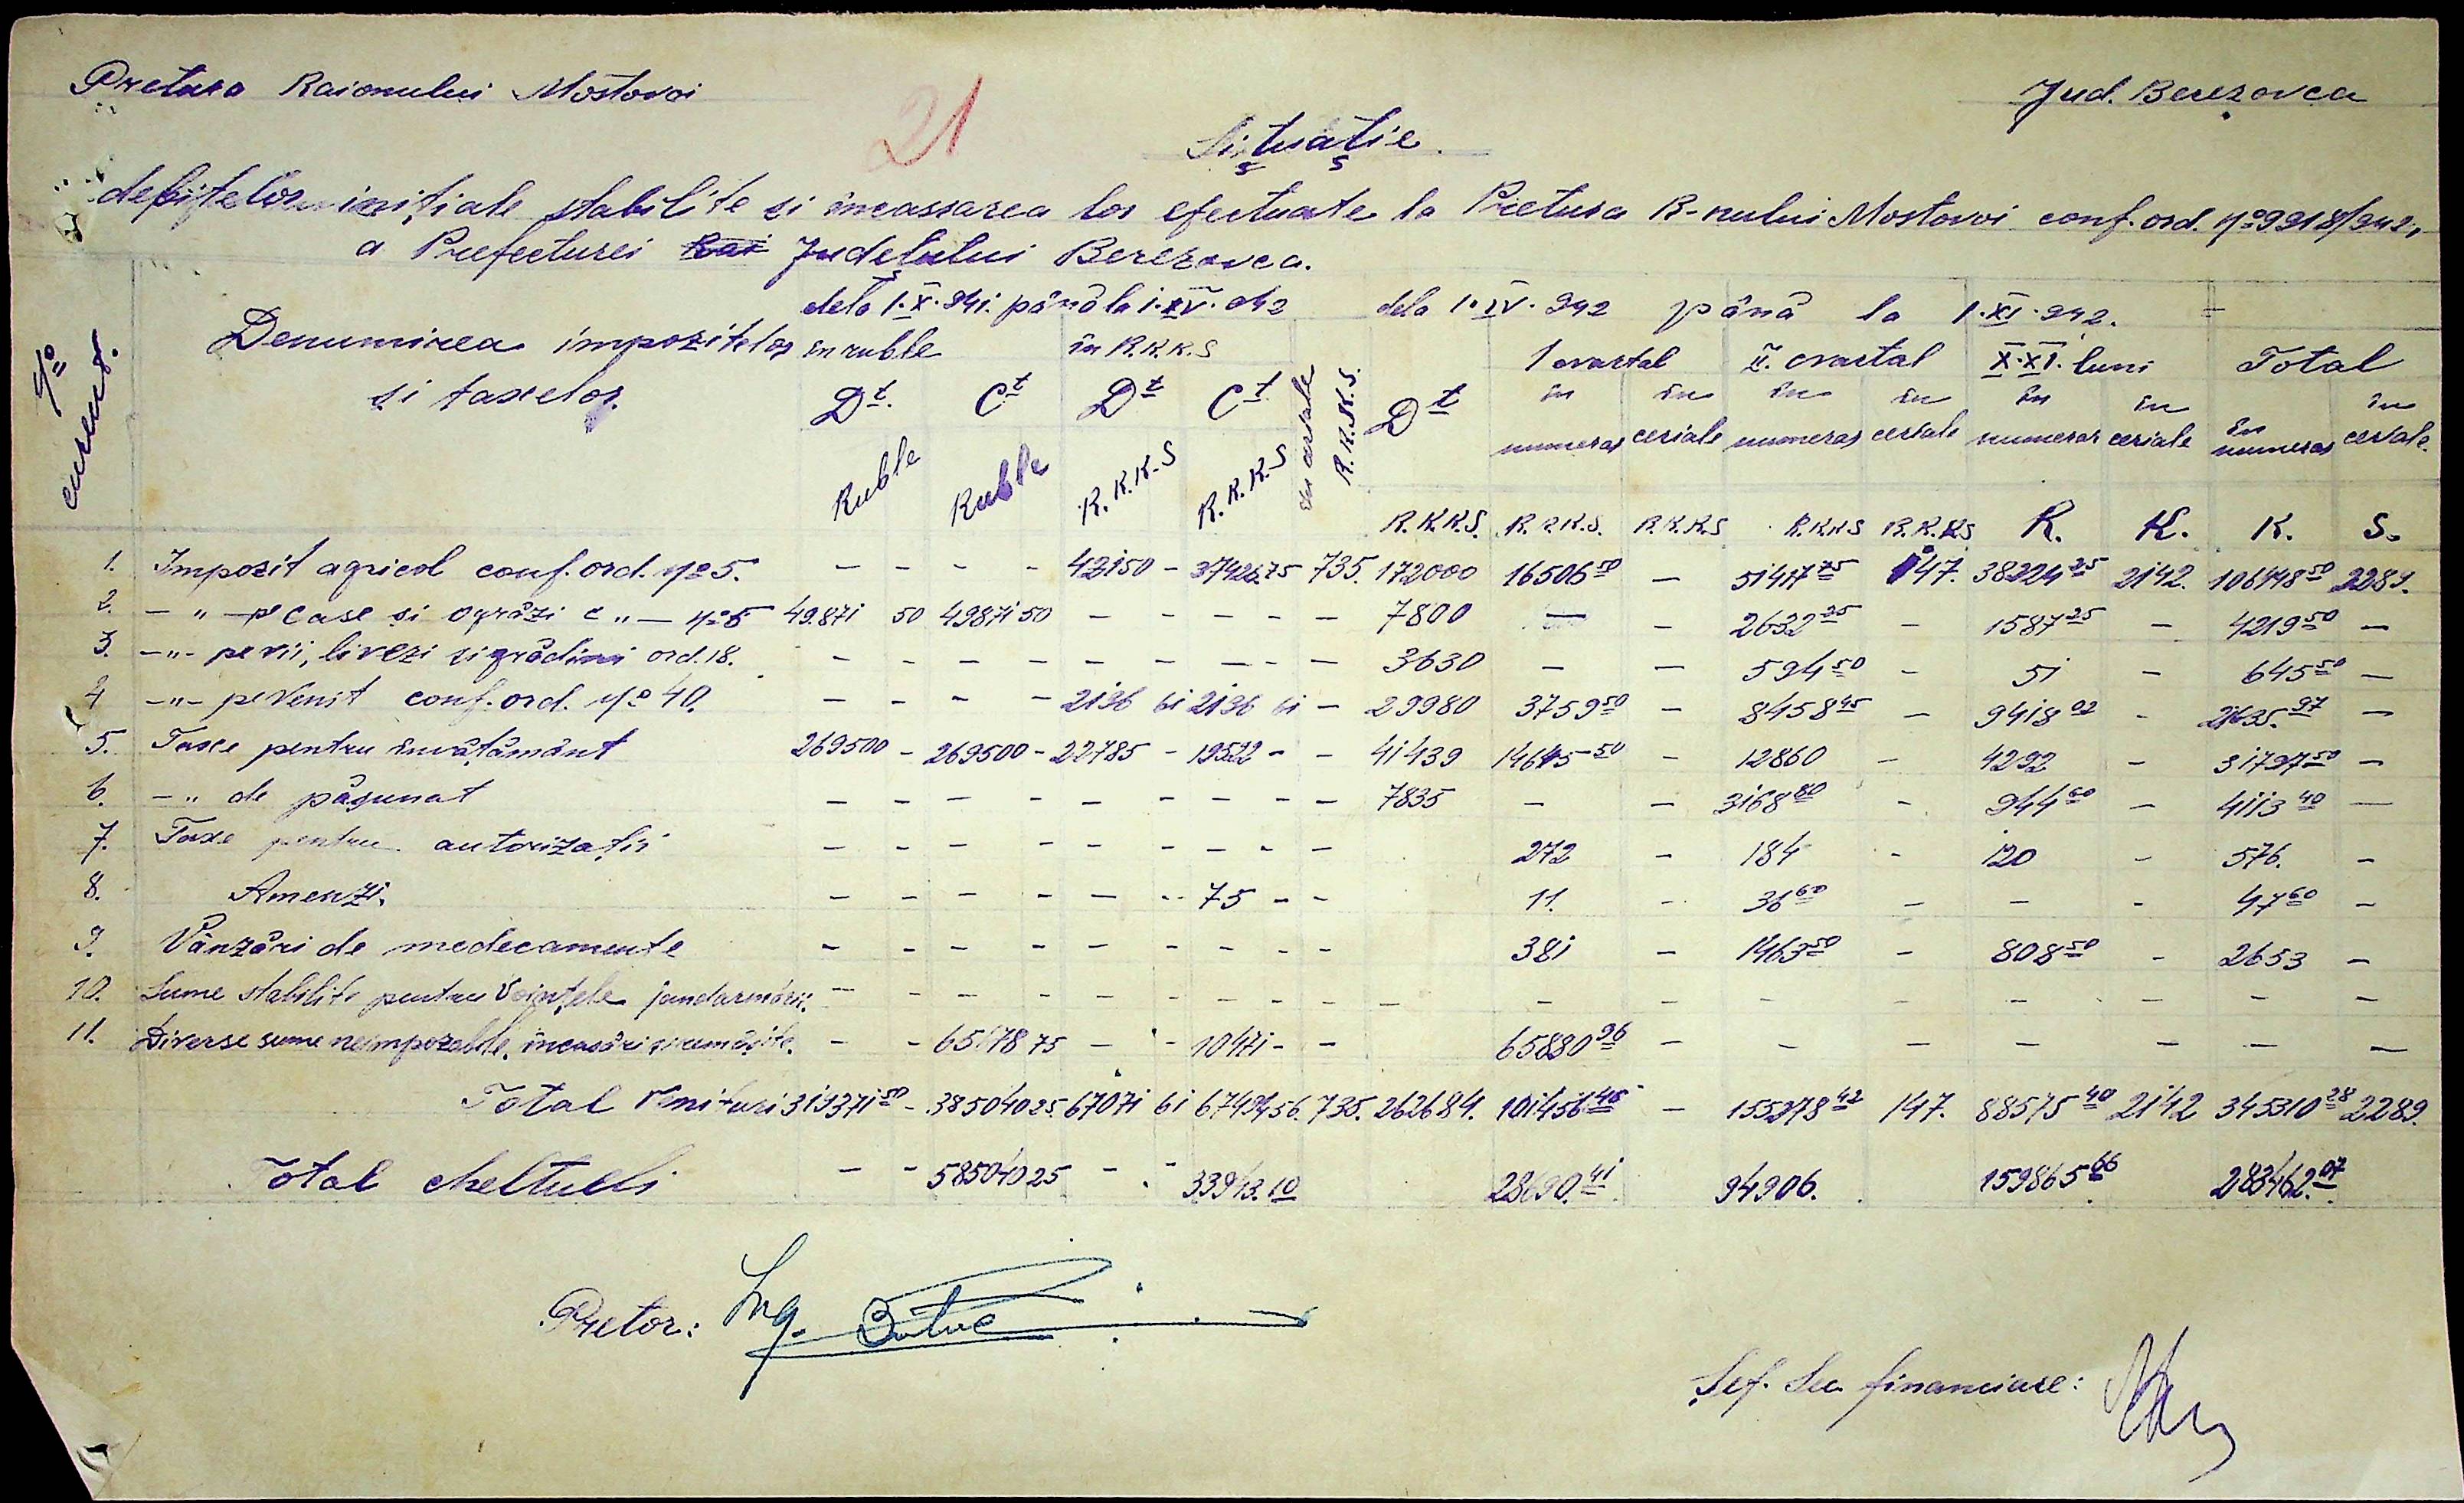 Pretura Raionului Mostovoi
Jud. Berezovca
21
Situatie
debitelor inițiale stabilite si incassarea lor efectuate la Pretura R-nului Mostovoi conf. ord. No 9918/942,
a Prefecturei Rai Județului Berezovca.
No curent.
Denumirea impozitelor si taxelor
dela 1.X.941. până la 1.IV.942
dela 1.IV.942 până la 1.XI.942.
în ruble în R.K.K.S
1 cvartal II. cvartal X-XI. luni Total
Dt. Ct Dt Ct în ceriale R.K.K.S. Dt în numerar în ceriale în numerar în ceriale în numerar în ceriale în numerar în ceriale
Ruble Ruble R.K.K.S R.K.K.S R.K.K.S. R.K.K.S. R.K.K.S R.K.K.S R.K.K.S R. K. K. S.
1. Impozit agricol conf. ord. No 5. - - - - 42150 - 37426.75 735. 172000 16506 50 - 51417 75 147. 38224 25 2142. 106148 50 2289.
2. - " - pe case si ogrăzi c " - No 5 49.871 50 49871 50 - - - - - 7800 - - 2632 25 - 1587 25 - 4219 50 -
3. - " - pe vii, livezi si grădini ord. 18. - - - - - - - - - 3630 - - 594 50 - 51 - 645 50 -
4 - " - pe Venit conf. ord. No 40. - - - - 2136 61 2136 61 - 29980 3759 50 - 8458 45 - 9418 02 - 21635. 97 -
5. Taxe pentru învățământ 269500 - 269500 - 22785 - 19522 - - 41439 14645 50 - 12860 - 4292 - 31797 50 -
6. - " de pășunat - - - - - - - - - 7835 - - 3168 80 - 944 60 - 4113 40 -
7. Taxe pentru autorizații - - - - - - - - - 272 - 184 - 120 - 576. -
8. Amenzi. - - - - - - 75 - - 11. - 36 60 - - - 47 60 -
9. Vânzări de medecamente - - - - - - - - - 381 - 1463 50 - 808 50 - 2653 -
10. Sume stabilite pentru jandarmării. - - - - - - - - - - - - - - - - - -
11. Diverse sume neimpozabile, încasări și rămășite. - - 65178 75 - - 10471 - - 65880 96 - - - - - - -
Total Venituri 319371 50 - 385040 25 67071 61 67494 56. 735. 262684. 101456 46 - 155278 42 147. 88575 40 2142 345310 28 2289.
Total cheltueli - - 585040 25 - - 33943.10 28690. 41 94906. 159865 66 283462. 07
Pretor: Ing.
Șef. Sec financiare: